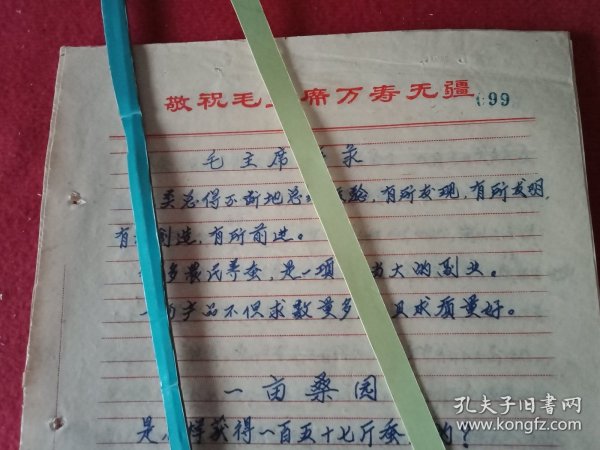 敬祝毛 席万寿无疆 099
毛主席 录
类总得不断地总 验，有所发现，有所发明，
有 创造，有所前进。
多农民养蚕，是一项 大的副业。
一 产品不但求数量多 且求质量好。
一亩桑园
是 样获得一百五十七斤蚕 的？
孔夫子旧书网
www.kongfz.com